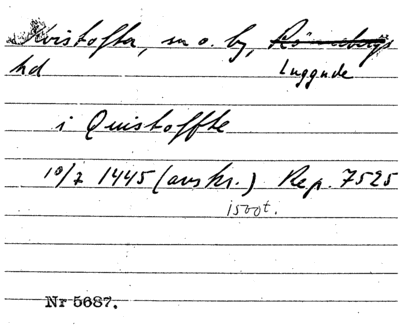 Kvistofta, sn o. by, Rönnebergs
hd Luggude
i Quistoffte
10/7 1445 (avskr.) Rep. 7525
1500t.
Nr 5687.